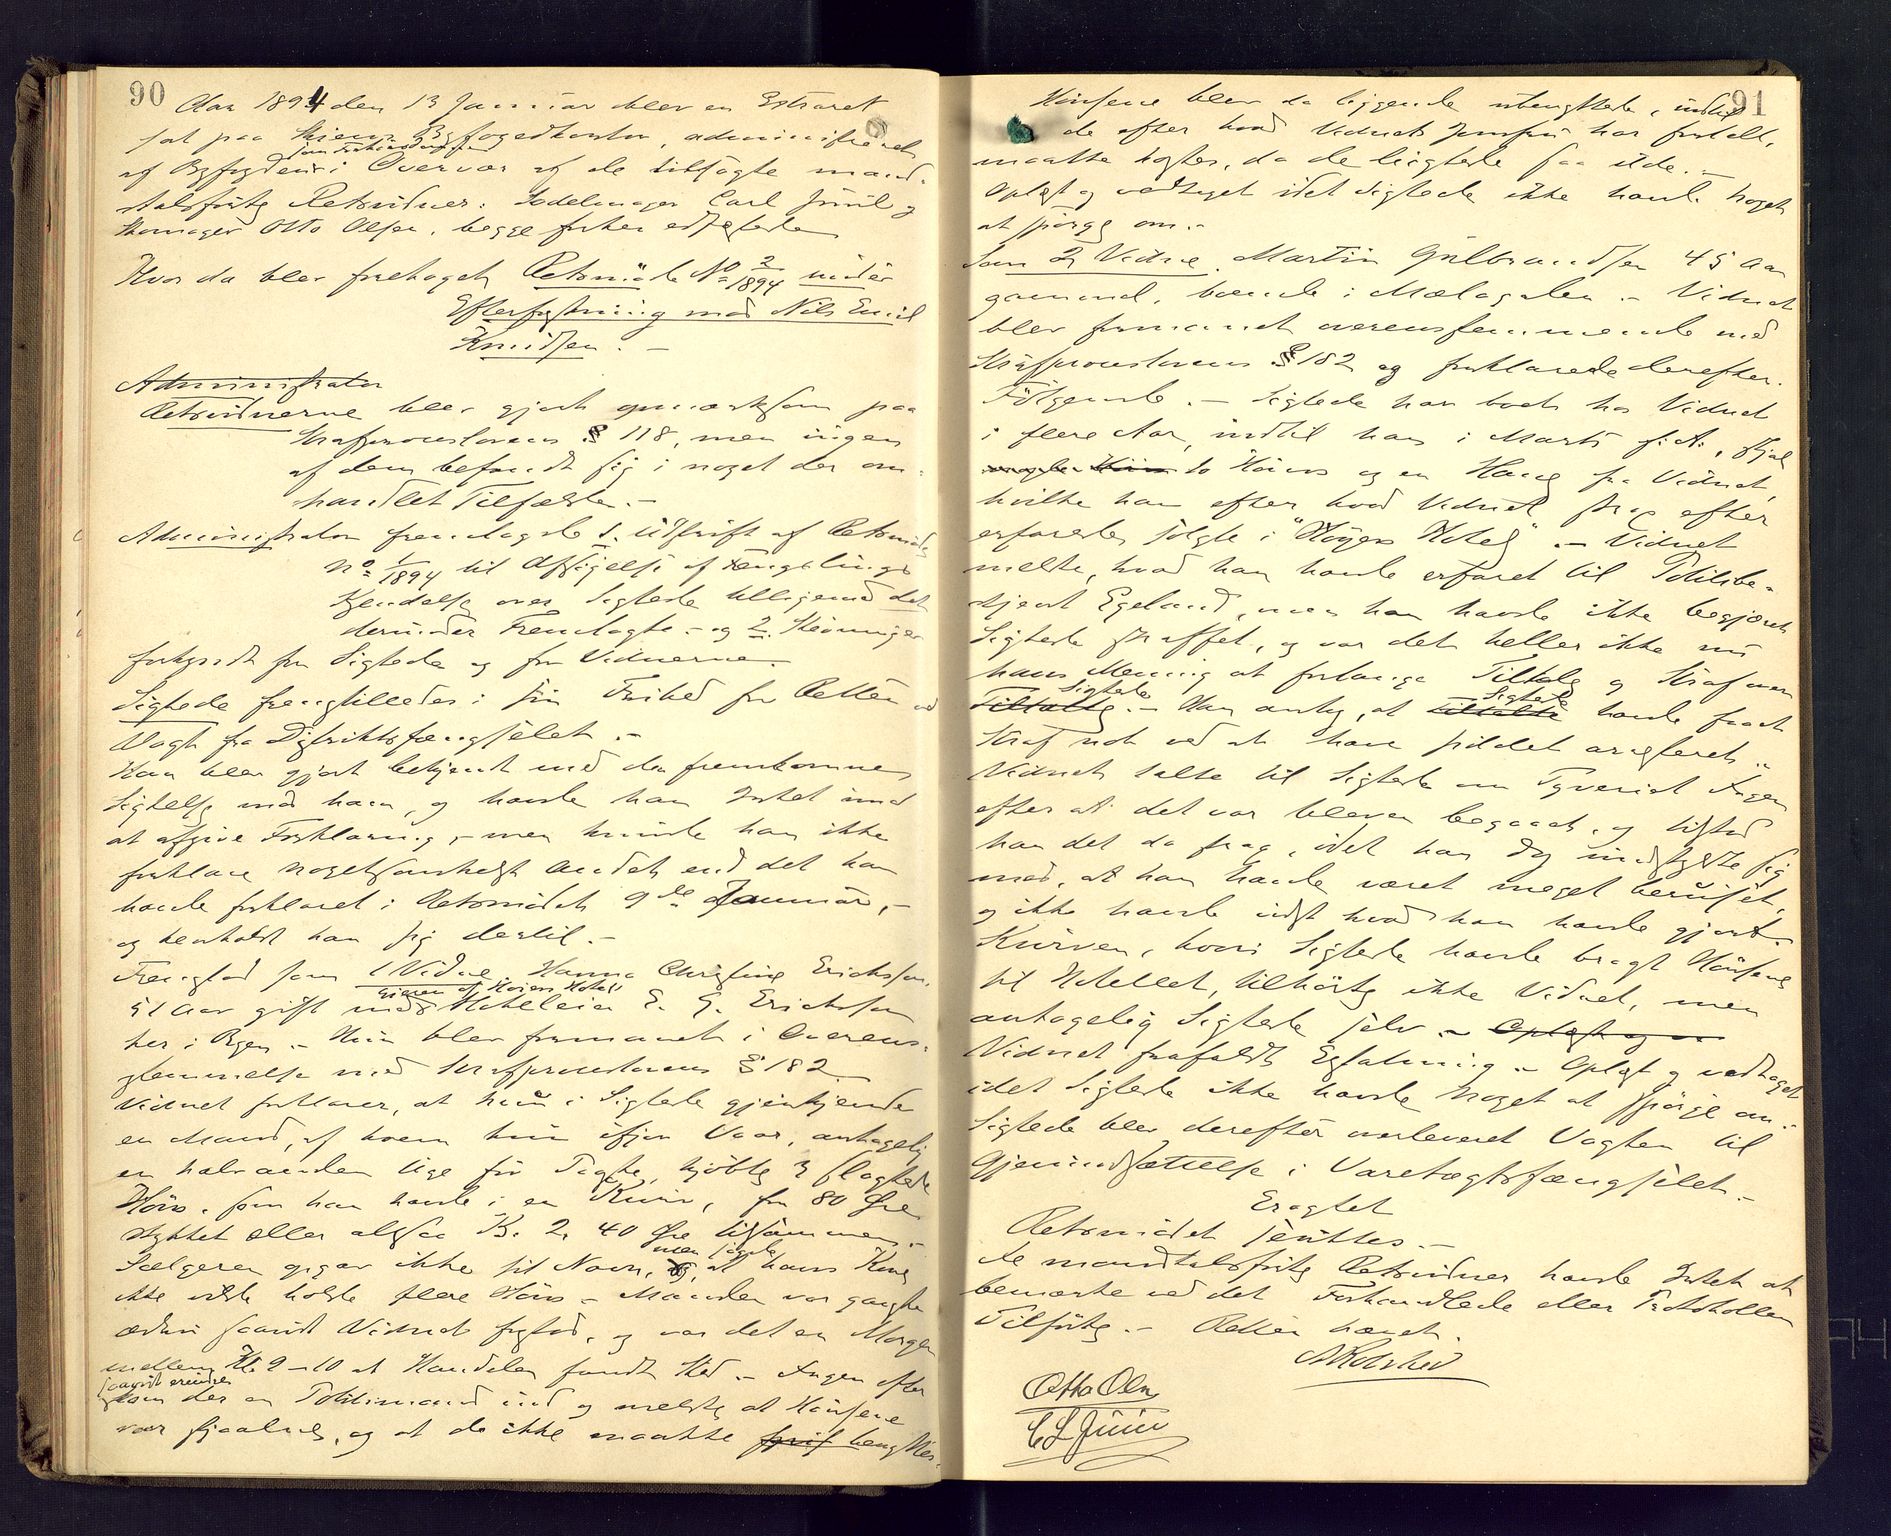 90
Aar 1894 den 13 Januar blev en Extraret
sat paa Skiens Byfogedkontor, administreret
af Byfogden i Overvær af de tilsagte mand-
som Forhørsdommer
talsfrie Retsvidner: Sadelmager Carl Juul og
Skomager Otto Olsen, begge forhen edfæstede
Hvor da blev foretaget Retsmöde No 2/1894 under
Efterforskning mod Nils Emil
Knudsen. –
Administrator
Retsvidnerne blev gjort opmærksom paa
Strafproceslovens § 118, men ingen
af dem befandt sig i noget der om-
handlet Tilfælde. –
Administrator fremlagde 1. Udskrift af Retsmöde
No 1/1894 til Afsigelse af Fængslings
Kjendelse over Sigtede tilligemed det
derunder Fremlagte – og 2. Stevninger
forkyndt for Sigtede og for Vidnerne. –
Sigtede fremstilledes i fri Tilstand for Retten ved
Vagt fra Distriktsfængslet. –
Han blev gjort bekjent med den fremkomne
Sigtelse mod ham, og havde han Intet imod
at afgive Forklaring, – men kunde han ikke
forklare nogetsomhelst Andet end det han
havde forklaret i Retsmödet 9de Januar, –
og henholdt han sig dertil. –
Fremstod som 1 Vidne, Hanna Christine Erichsen,
51 Aar gift med Hoteleier E. G. Erichsen
Eieren af Höiers Hotel
her i Byen. – Hun blev formanet i Overens-
stemmelse med Strafproceslovens § 182
Vidnet forklarer, at hun i Sigtede gjenkjender
en Mand, af hvem hun ifjor Vaar, antagelig
en halvanden Uge för Paaske, kjöbte 3 slagtede
Höns, som han havde i en Kurv, for 80 Öre
Stykket eller altsaa Kr. 2, 40 Öre tilsammen. –
Sælgeren opgav ikke sit Navn, men sagde at hans Kone
ikke vilde holde flere Höns – Manden var ganske
ædru saavidt Vidnet forstod, og var det en Morgen
mellem Kl 9 – 10 at Handelen fandt Sted. – Ingen efter
saavidt erindres
kom der en Politimand ind og meldte at Hönsene
var stjaalne, og at de ikke maatte benyttes.
91
Hönsene blev da liggende ubenyttede, indtil
de efter hvad Vidnets Jomfru har fortalt,
maatte kastes, da de lugtede saa ilde. –
Oplæst og vedtaget idet Sigtede ikke havde Noget
at spörge om. –
Som 2 Vidne, Martin Gulbrandsen 45 Aar
gammel, boende i Mælagaden. – Vidnet
blev formanet overensstemmende med
Strafproceslovens § 182 og forklarede derefter
Fölgende. – Sigtede har boet hos Vidnet
i flere Aar, indtil han i Marts f. A., stjal
to Höns og en Hane fra Vidnet,
hvilke han efter hvad Vidnet strax efter
erfarede solgte i "Höyers Hotel". – Vidnet
meldte, hvad han havde erfaret til Politibe-
tjent Egeland, men han havde ikke begjæret
Sigtede straffet, og var det heller ikke nu
hans Mening at forlange Tiltale og Straf over
Tiltalte. – Han antog, at Tiltalte havde faaet
Sigtede Sigtede
Straf nok ved at have siddet arresteret. –
Vidnet talte til Sigtede om Tyveriet Dagen
efter at det var bleven begaaet, og tilstod
han det da strax, idet han dog undskyldte sig
med, at han havde været meget beruset,
og ikke havde vidst hvad han havde gjort. –
Kurven, hvori Sigtede havde bragt Hönsene
til Hotellet, tilhörte ikke Vidnet, men
antagelig Sigtede selv. – Oplæst og
Vidnet frafaldt Erstatning. – Oplæst og vedtaget
idet Sigtede ikke havde Noget at spörge om. –
Sigtede blev derefter overleveret Vagten til
Gjenindsættelse i Varetægtsfængslet. –
Eragtet
Retsmödet sluttes. –
De mandtalsfrie Retsvidner havde Intet at
bemærke ved det Forhandlede eller Protokollen
Tilförte. – Retten hævet.
Otto Olsen
C L Juul